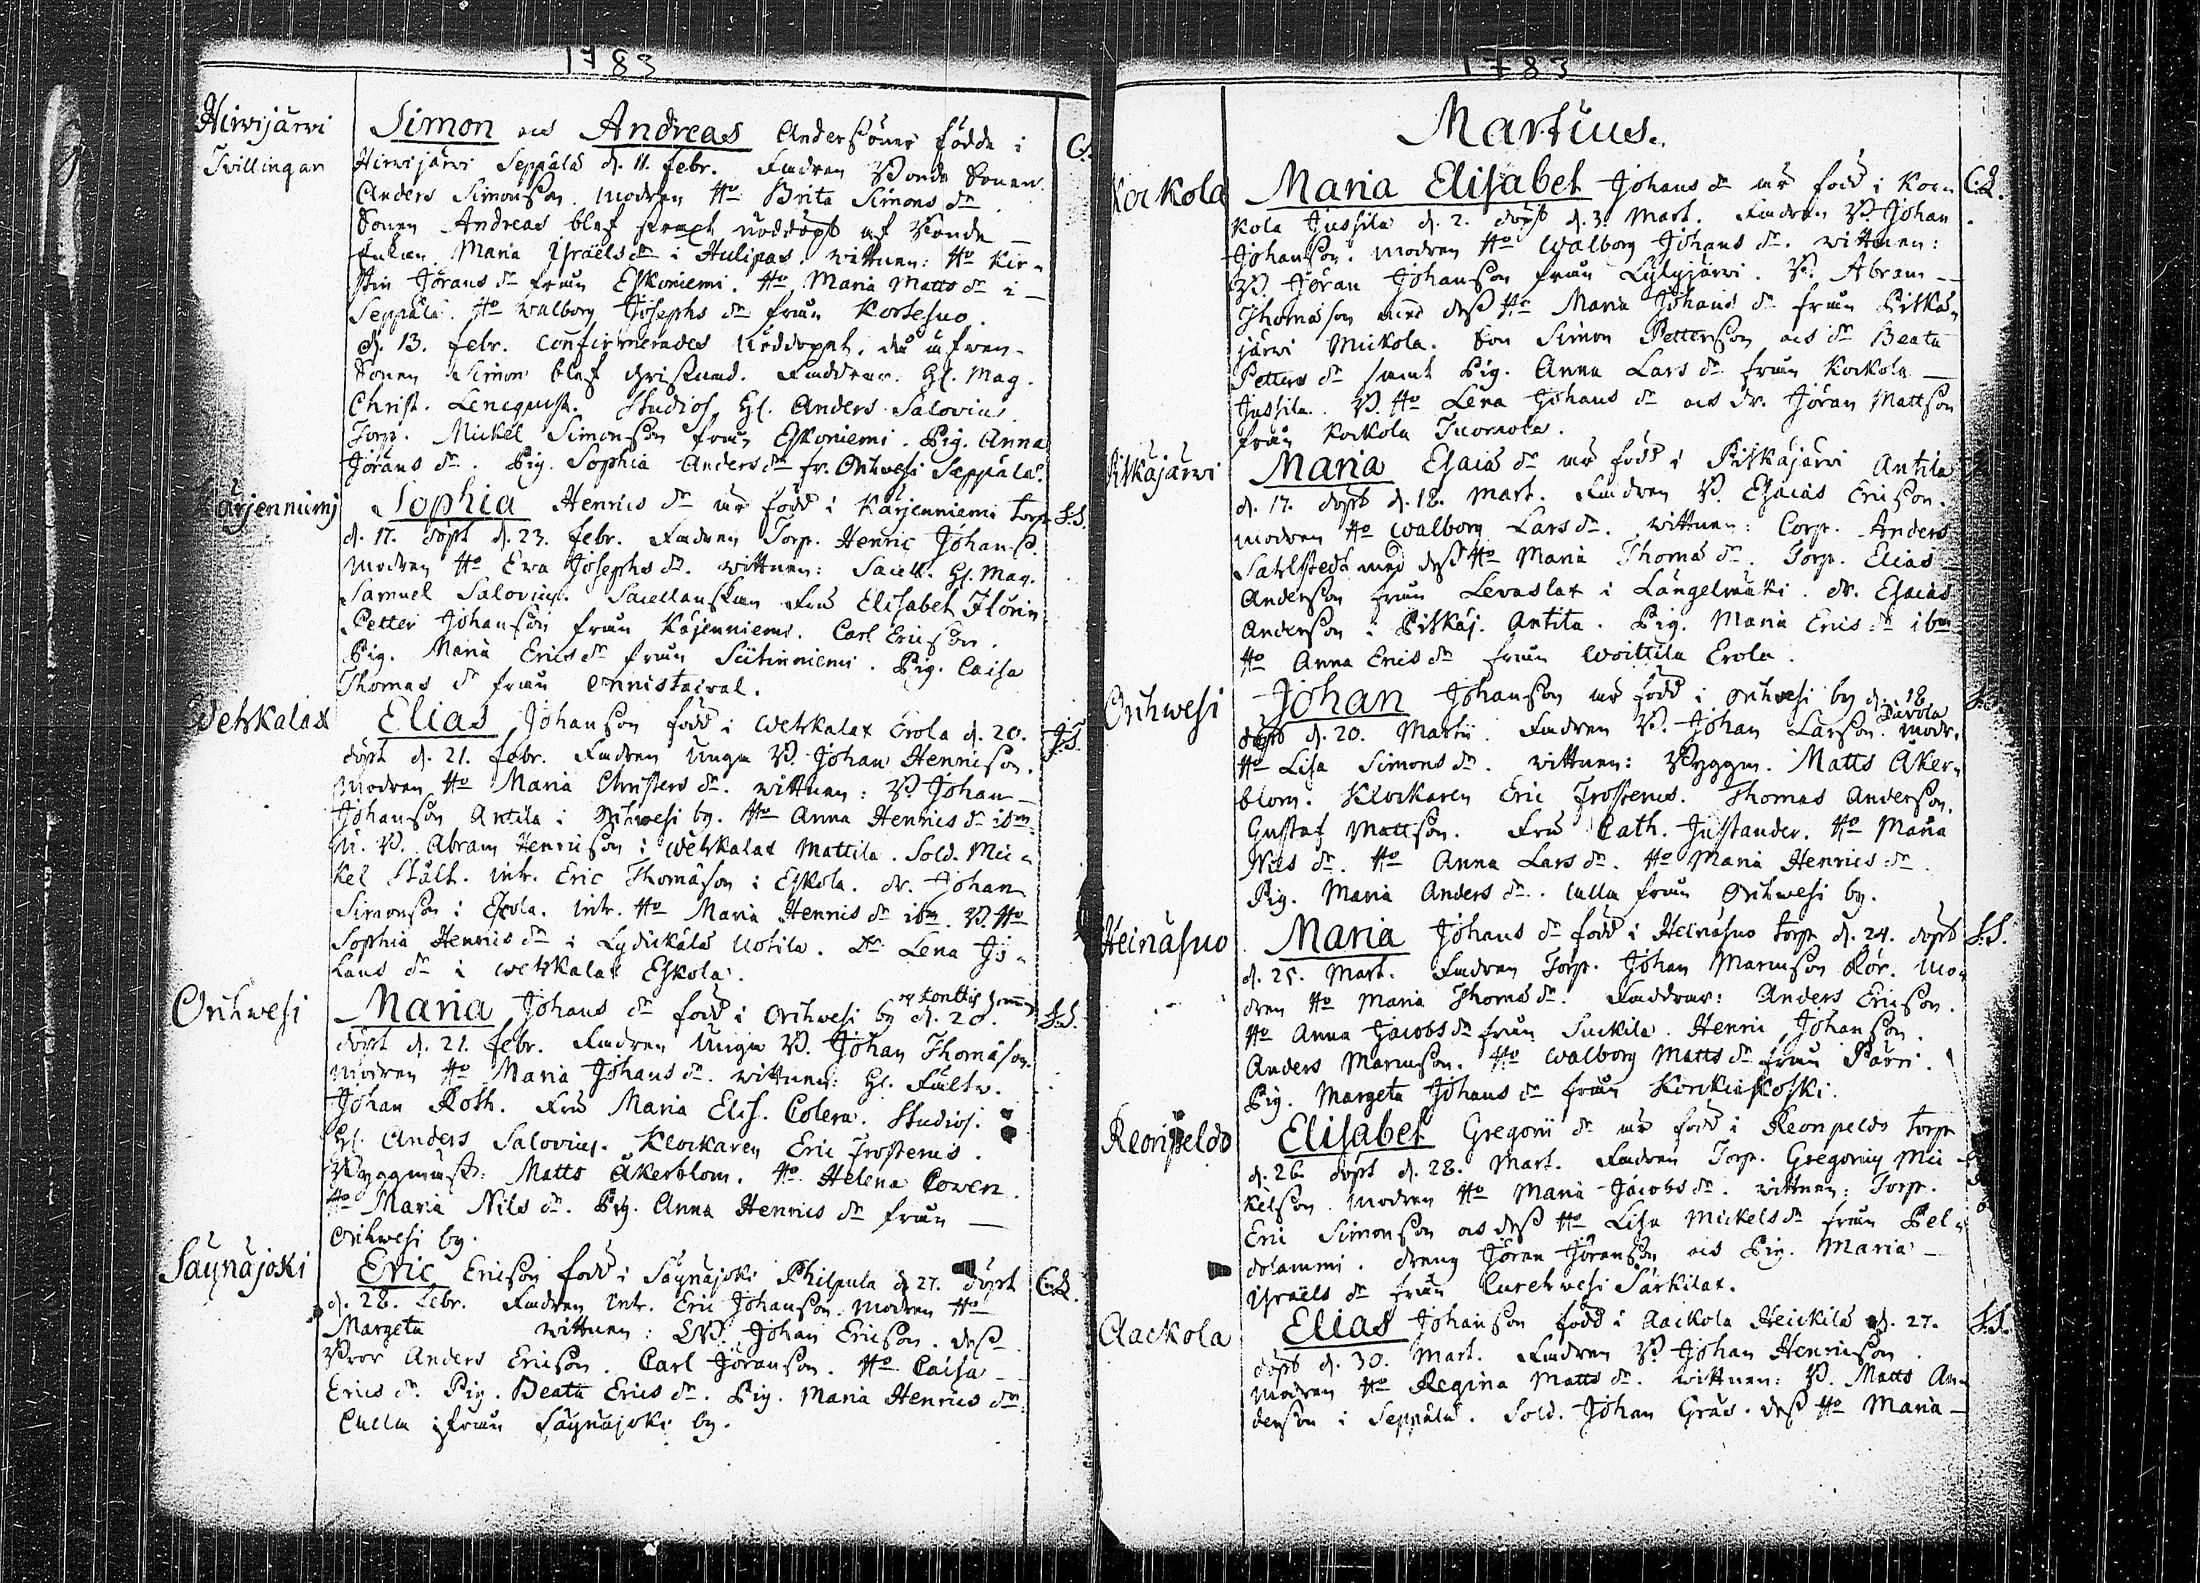 1783
Hirwijärwi
Tvillingar
Simon och Andreas Andersöner födde i
Hirwijärwi Seppälä d. 11. febr. Fadren Bonde Sonen
Anders Simonsson. Modren Ho Brita Simons dr.
Sonen Andreas blef nöddöpt af Bonde
Enkan Maria Israëls dr i Hulipas. wittnen: Ho Kir-
stin Jörans dr från Eskoniemi. Ho Maria Matts dr i
Seppälä. Ho Walborg Josephs dr från Kortesuo.
d. 13. febr. confirmerades Nöddopet, då äfwen
Sonen Simon blef Christnad. Faddrar. Hl. Mag.
Christ. Lencqwist. Studios. Hl. Anders Salovius
Torp. Mickel Simonson från Eskoniemi. Pig. Anna
Jörans dr. Pig. Sophia Anders dr fr. Orihwesi Seppälä.
C.
Kärjenniemj
Sophia Henrics dr är född i Kärjenniemi torp
d. 17. döpt d. 23. febr. Fadren Torp. Henric Johans.
Modren Ho Ewa Josephs dr. wittnen: Sacell. Hl. Mag.
Samuel Salovius. Sacellanskan Fru Elisabet Florin
Petter Johanson från Käjenniemi. Carl Ericson.
Pig. Maria Erics dr från Siitinniemi. Pig. Caisa
Thomas dr från Onnistaival.
S.S.
Wetzkalax
Elias Johanson född i Wetzkalax Erola d. 20.
döpt d. 21. febr. Fadren Unga B. Johan Henricson.
Modren Ho Maria Christers dr. wittnen: B. Johan
Johanson Antila i Orihwesi by. Ho Anna Henrics dr ibm.
U. B. Abram Henricson i Wetzkalax Mattila. Sold. Mic-
kel Stålt. Inh. Eric Thomason i Eskola. dr. Johan
Simonson i Eskola. Inh. Ho Maria Henrics dr ibm. B. Ho
Sophia Henrics dr i Lydickälä Uotila. Dr. Lena Jo-
hans dr i Wetzkalax Eskola.
S.S.
Orihwesi
Maria Johans dr född i Orihwesi by d. 20.
döpt d. 21. febr. Fadren Unga B. Johan Thomason.
Modren Ho Maria Johans dr. wittnen: Hl. Fältw.
Johan Roth. Fru Maria Elis. Colera. Studios.
Hl. Anders Salovius. Klockaren Eric Frostenis.
Byggmäst. Matts Åkerblom. Ho Helena Cowen.
Ho Maria Nils dr. Pig. Anna Henrics dr från
Orihwesi by.
S.S.
Säynäjoki
Eric Ericson född i Säynäjoki Philpula d. 27. döpt
d. 28. febr. Fadren Inh. Eric Johanson. Modren Ho
Margeta wittnen: B. Johan Ericson. dess
Bror Anders Ericson. Carl Jöranson. Ho Caisa
Erics dr. Pig. Beata Erics dr. Pig. Maria Henrics dr.
alla från Säynäjoki by.
C.L.
1783
Martius.
Kockola
Maria Elisabet Johans dr är född i Koc-
kola Jussila d. 2. döpt d. 3. Mart. Fadren B. Johan
Johanson. Modren Ho Walborg Johans dr. wittnen:
B. Jöran Johanson från Lylyjärwi. B. Abram
Thomason med dess Ho Maria Johans dr från Pitkä-
järwi Mickola. Son Simon Petterson och dr Beata
Petters dr samt Pig. Anna Lars dr från Kockola
Jussila. B. Ho Lena Johans dr och dr. Jöran Mattson
från Kockola Tuomola.
C.L.
Pitkäjärwi
Maria Esaiä dr är född i Pitkäjärwi Antila
d. 17. döpt d. 18. Mart. Fadren B. Esaias Ericson.
modren Ho Walborg Lars dr. wittnen: Corp. Anders
Sahlstedt med dess Ho Maria Thomä dr. Torp. Elias
Anderson från Levaslax i Längelmäki. dr. Esaias
Anderson i Pitkäj. Antila. Pig. Maria Erics dr ibm
Ho Anna Erics dr från Woittila Erola.
Orihwesi
Johan Johanson är född i Orihwesi by d. 18
Pärola
döpt d. 20. Martii. Fadren B. Johan Larson. Modr.
Ho Lisa Simons dr. wittnen: Byggm. Matts Åker-
blom. Klockaren Eric Frostenus. Thomas Anderson.
Gustaf Mattson. Fru Cath. Justander. Ho Maria
Nils dr. Ho Anna Lars dr. Ho Maria Henrics dr.
Pig. Maria Anders dr. alla från Orihwesi by.
Heinäsuo
Maria Johans dr född i Heinäsuo torp d. 24. döpt
d. 25. Mart. Fadren Torp. Johan Maruson Rör. Mo-
dren Ho Maria Thomä dr. Faddrar: Anders Ericson.
Ho Anna Jacobs dr från Suckila. Henric Johanson.
Anders Maruson. Ho Walborg Matts dr från Päri.
Pig. Margeta Johans dr från Korkiakoski.
S.S.
Reonpeldo
Elisabet Gregorii dr är född i Reonpeldo torp
d. 26. döpt d. 28. Mart. Fadren Torp. Gregorius Mic-
kelson. Modren Ho Maria Jacobs dr. wittnen: Torp.
Eric Simonson och dess Ho Lisa Mickels dr från Pel-
dolammi. dreng Jöran Jöranson och Pig. Maria
Israëls dr från Curchwesi Särkilax.
Aackola
Elias Johanson född i Aackola Heickilä d. 27.
döpt d. 30. Mart. Fadren B. Johan Henricson.
Modren Ho Regina Matts dr. wittnen: B. Matts An-
derson i Seppälä. Sold. Johan Gräs. dess Ho Maria
S.S.